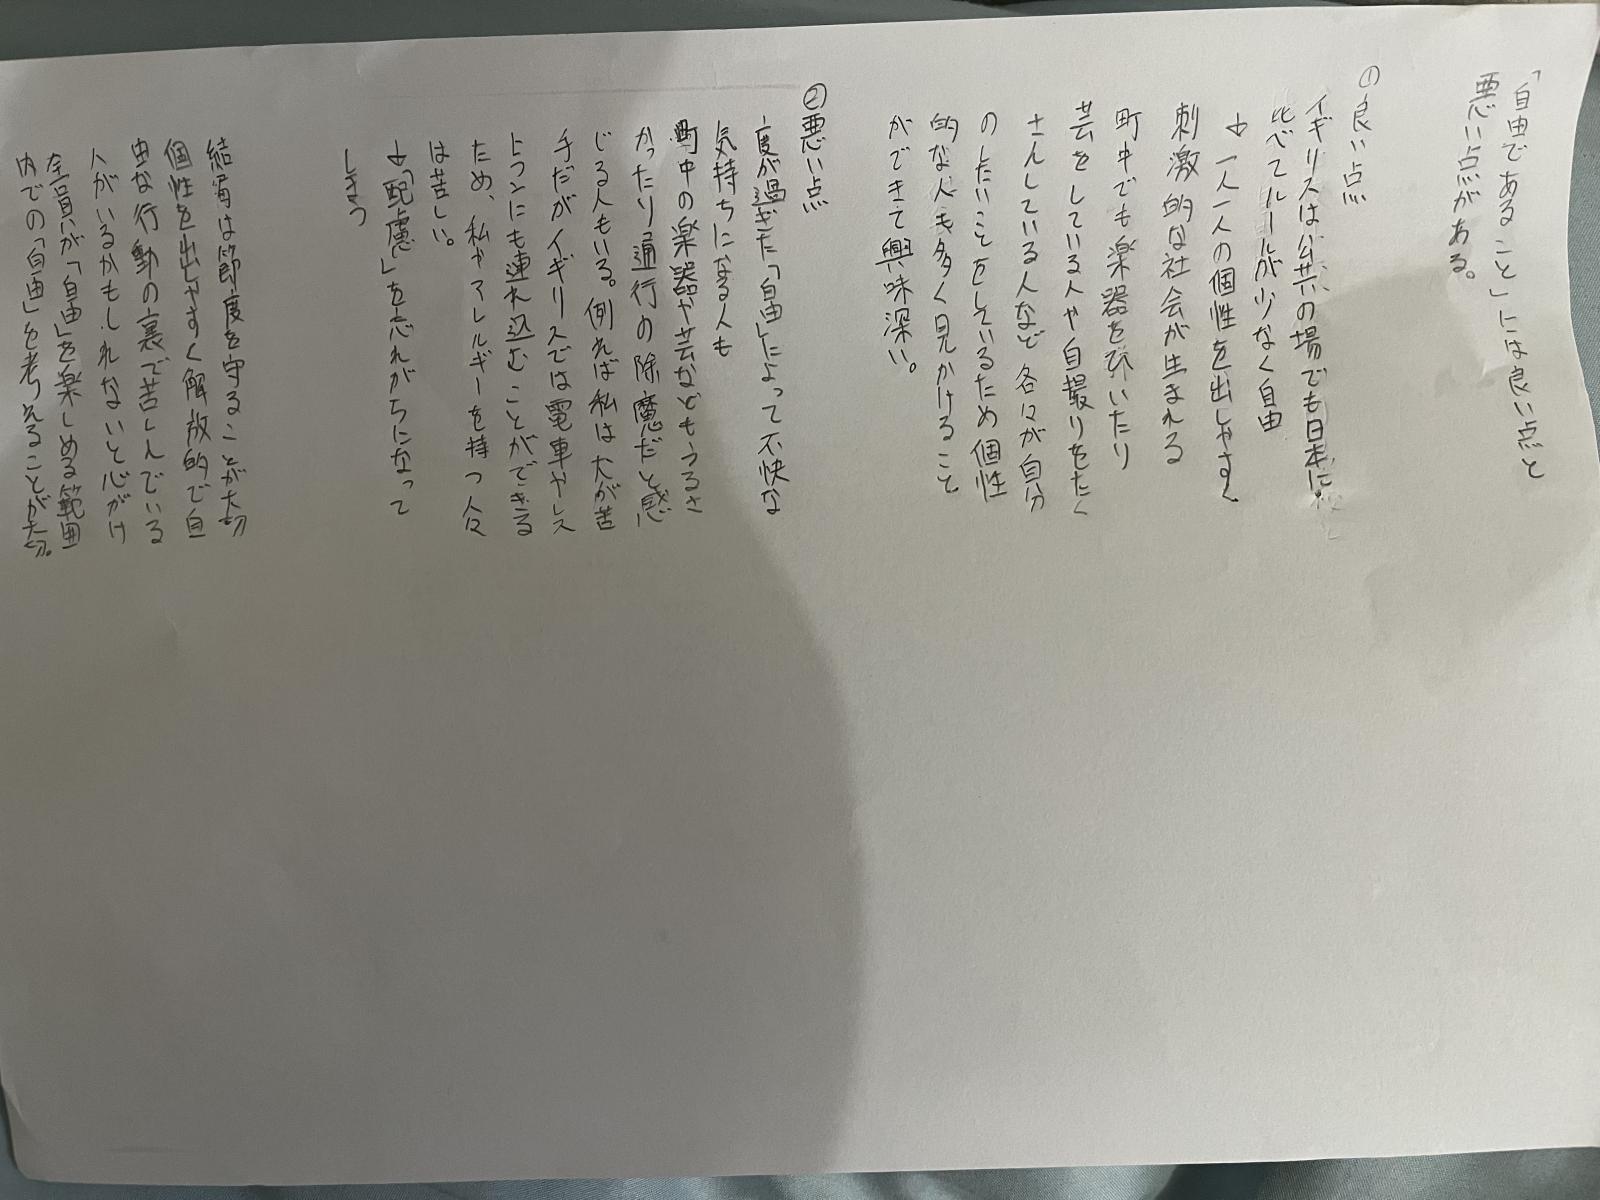 「自由であること」には良い点と
悪い点がある。
①良い点
イギリスは公共の場でも日本に
比べてルールが少なく自由
↓一人一人の個性を出しやすく
刺激的な社会が生まれる
町中でも楽器をひいたり
芸をしている人や自撮りをたく
さんしている人など各々が自分
のしたいことをしているため個性
的な人も多く見かけること
ができて興味深い。
②悪い点
度が過ぎた「自由」によって不快な
気持ちになる人も
町中の楽器や芸などもうるさ
かったり通行の除魔だと感
じる人もいる。例えば私は犬が苦
手だがイギリスでは電車やレス
トランにも連れ込むことができる
ため、私やアレルギーを持つ人々
は苦しい。
↓「配慮」を忘れがちになって
しまう
結局は節度を守ることが大切
個性を出しやすく解放的で自
由な行動の裏で苦しんでいる
人がいるかもしれないと心がけ
全員が「自由」を楽しめる範囲
内での「自由」を考えることが大切。